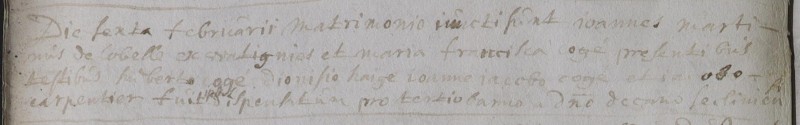 Die sexta februarii matrimonio iuncti sunt ioannes marti-
nus de lobelle ex watignies et maria francisca cogé presentibus
testibus huberto cogé dionisio haige ioanne iacobo cogé et iacobo
carpentier fuit dispensatum pro tertio banno a dno decano seclinien